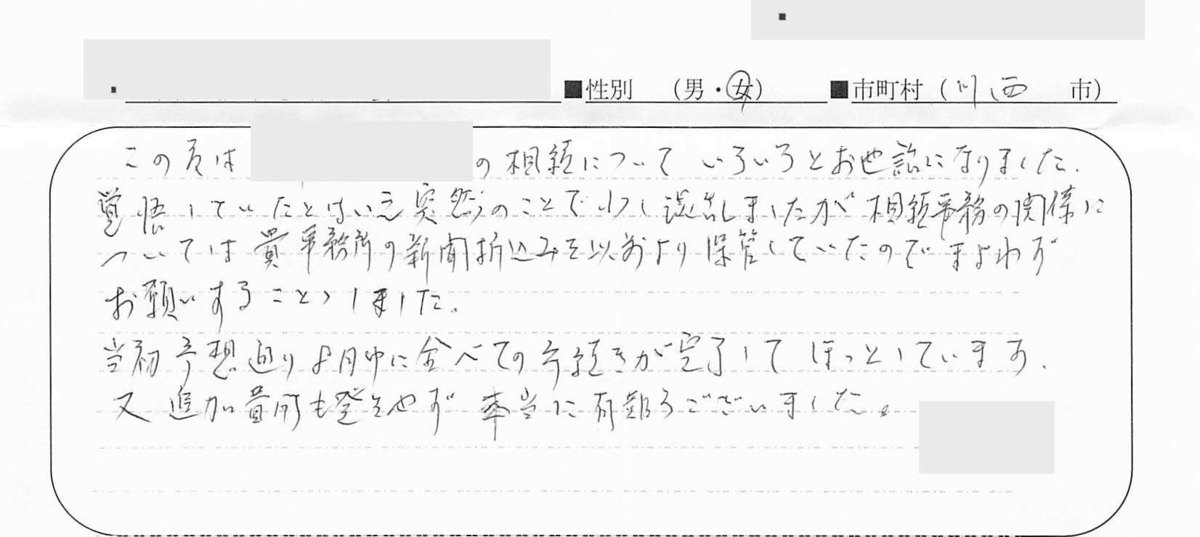 ■性別 （男・女） ■市町村（川西 市）
この度は の相続について いろいろとお世話になりました.
覚悟していたとはいえ突然のことで少し混乱しましたが相続事務の関係に
ついては貴事務所の新聞折込みを以前より保管していたのでまよわず
お願いすることにしました.
当初予想通り 月中に全べての手続きが完了して ほっとしています.
又 追加費用も発生せず 本当に有難うございました。